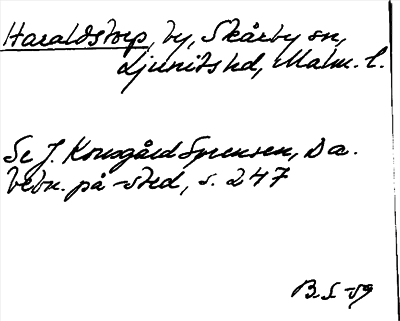 Haraldstorp, by, Skårby sn,
Ljunits hd, Malm. l.
Se J. Kousgård Sørensen, Da.
bebn. på -sted, s. 247
B.S-59